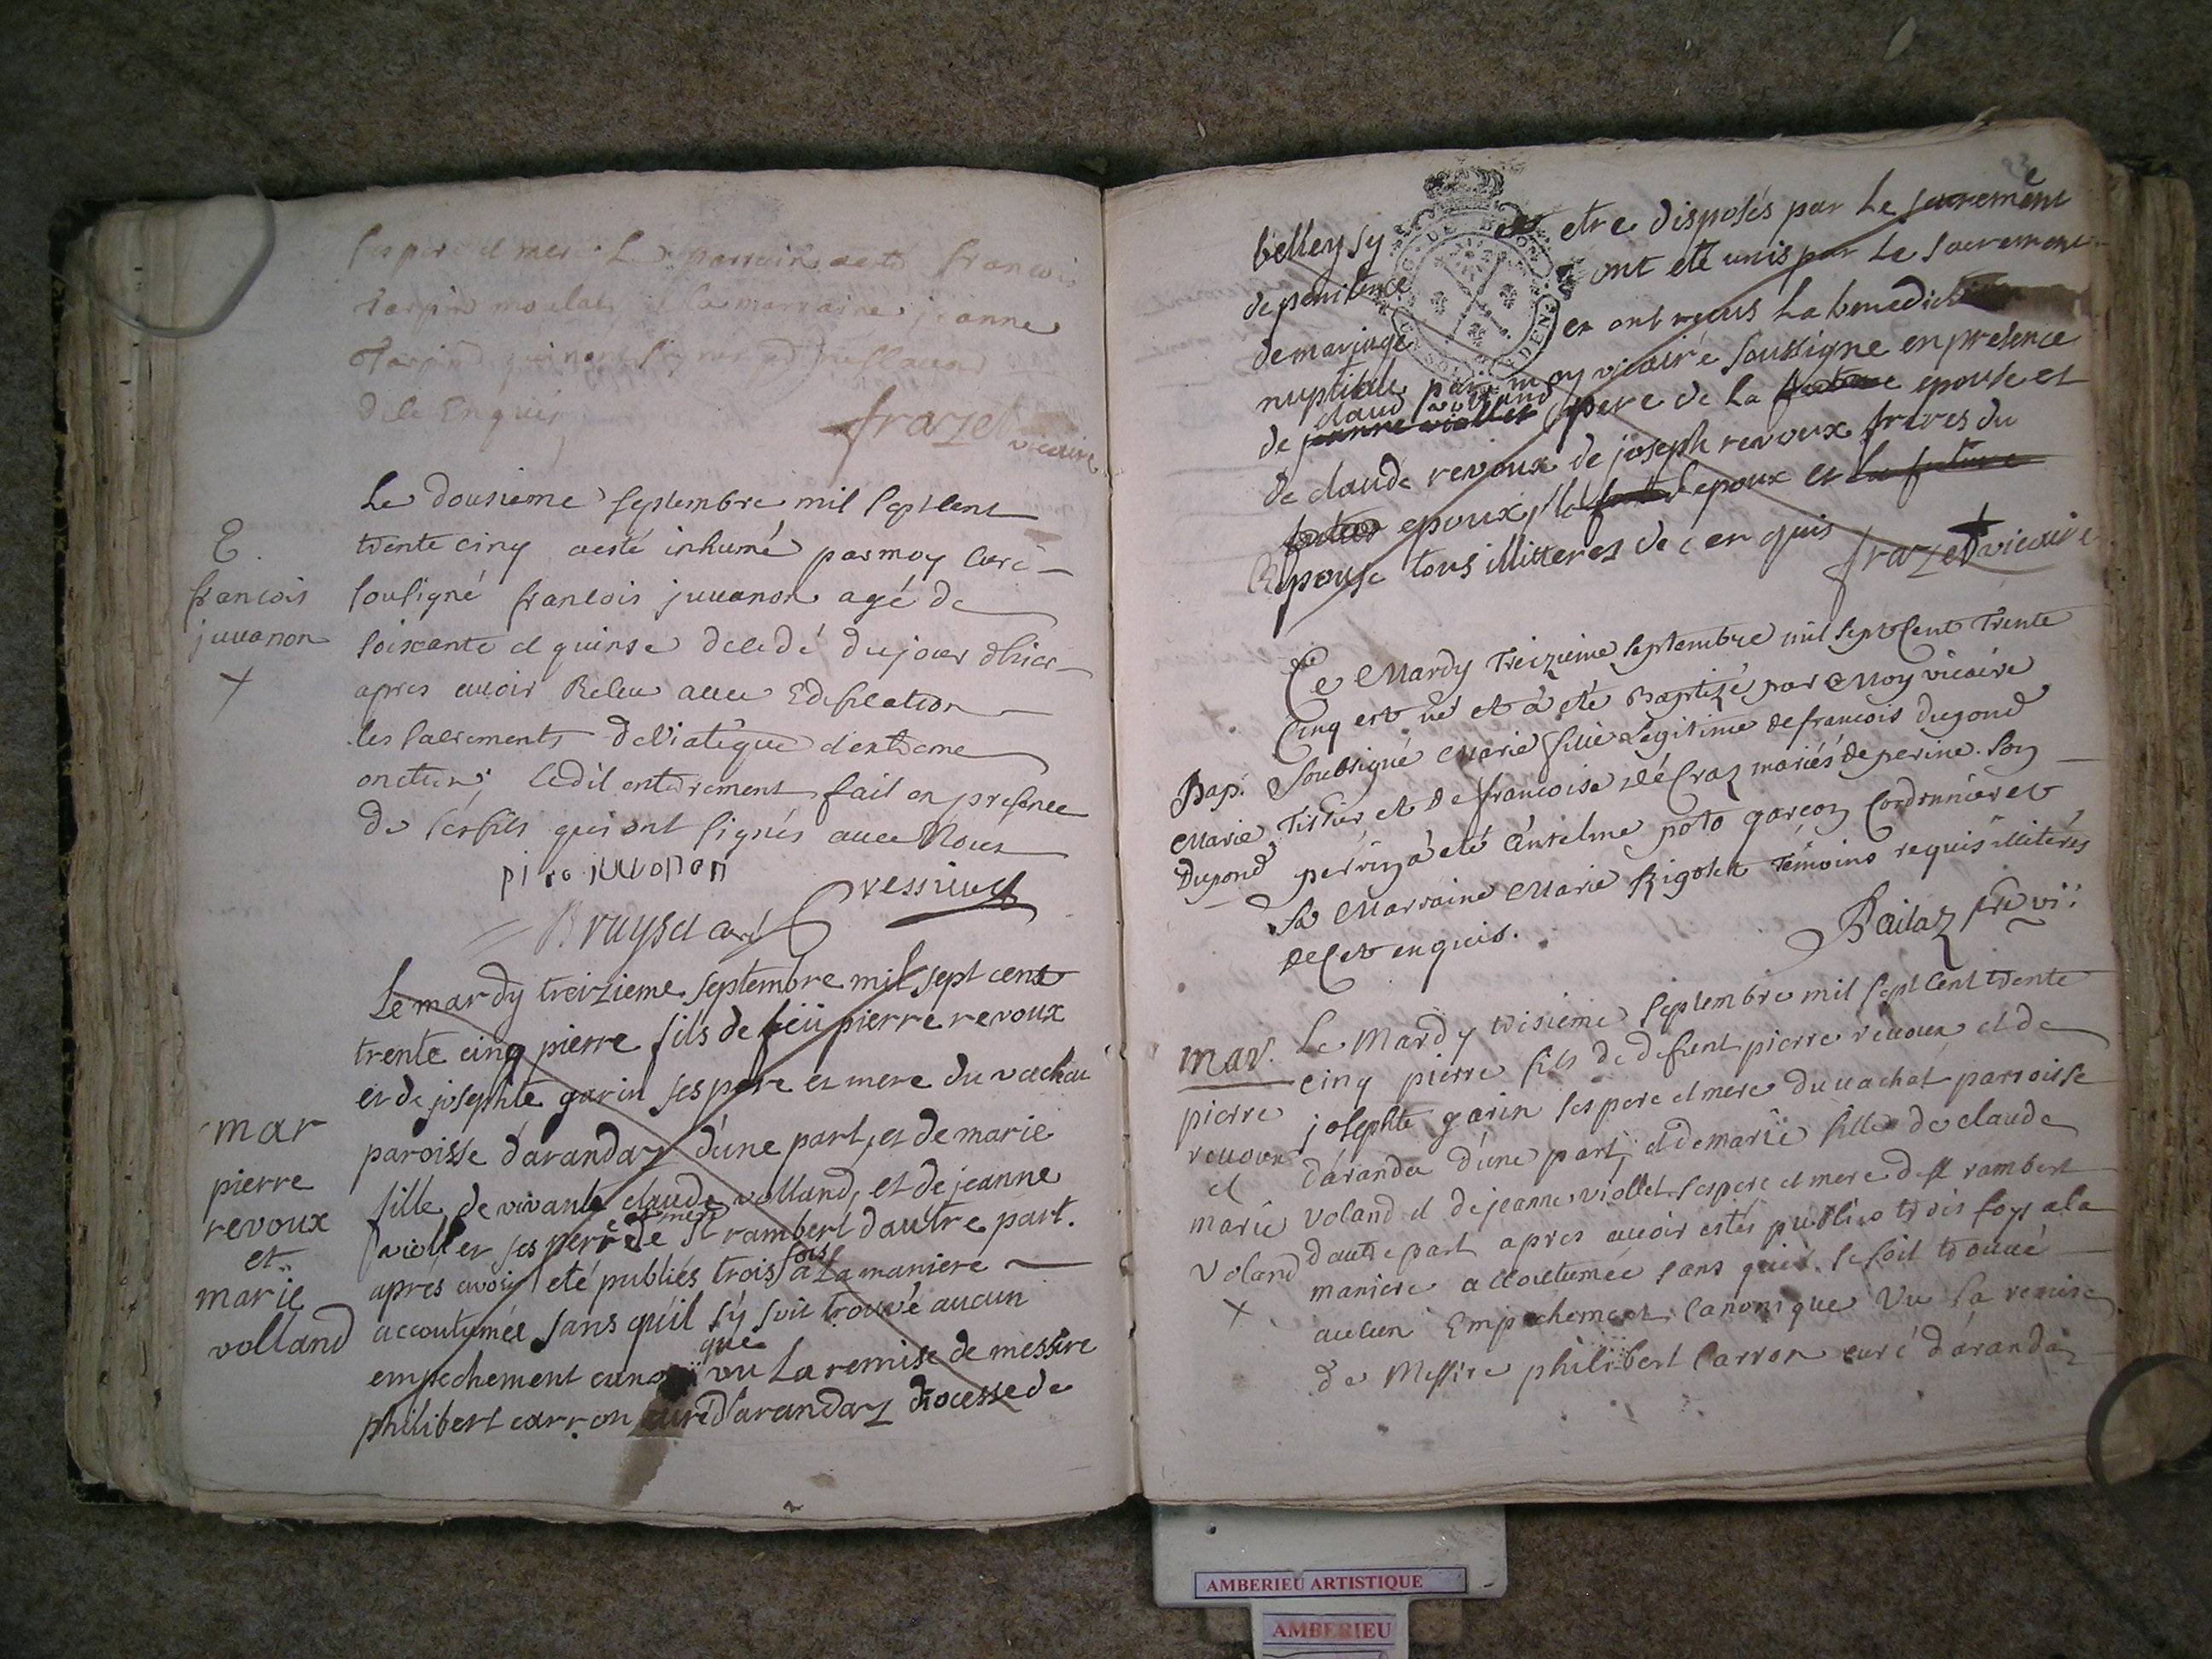 ses pere et mere Le parrain a eté francois
et la marraine jeanne
de ce Enquis
frazet vicaire
Le dousieme septembre mil sept cent
trente cinq a esté inhumé par moy curé
E.
francois
juuanon
sousigné francois juuanon agé de
soixante et quinse decedé du jour d'hier
apres auoir Receu auec Edification
les sacrements de viatique d'extreme
onction, ledit enterrement fait en presence
de ses fils qui ont signés auec Nous
juuanon
Bruyset curé
Le mardy treizieme septembre mil sept cent
trente cinq pierre fils de feu pierre revoux
et de josephte garin ses pere et mere du vachat
mar
pierre
revoux
et
marie
volland
paroisse d'arandaz d'une part, et de marie
fille de vivants claude volland, et de jeanne
viollet ses pere et mere de St rambert d'autre part.
apres avoir eté publiés trois fois a La maniere
accoutumée sans qu'il s'y soit trouvé aucun
empechement canonique vu La remise de messire
philibert carron curé d'arandaz diocesse de
belley etre disposés par Le sacrement
de penitence ont eté unis par Le sacrement
de mariage et ont reçus La benediction
nuptiale par moy vicaire soussigne en presence
de claud volland jeanne viollet pere de La future epouse et
de claude revoux de joseph revoux freres du
futur epoux, epoux et La future
Epouse tous illitteres de ce enquis
frazet vicaire
Ce Mardy Treizieme Septembre mil sept Cent Trente
Cinq est né et à eté Baptizé par Moy vicaire
Bap.
Marie
Dugond
Soubsigné Marie fille Legitime de francois dugond
Tissier et de francoise mariés de perine. Son
perrin à eté Anselme poto garçon Cordonnier et
Sa Marraine Marie Rigolet Témoins requis illiterés
de Ce enquis.
Le Mardy troisieme septembre mil sept Cent trente
mar.
pierre
reuoux
et
marie
voland
cinq pierre fils de defient pierre reuoux et de
josephte garin ses pere et mere du uachat parroisse
d'arandaz d'une part, et de marie fille de claude
voland et de jeanne viollet ses pere et mere de St rambert
d'autre part apres auoir estés publiés trois foys a la
maniere accoutumée sans qu'il se soit trouué
aucun Empechement Canonique Vu la remise
de Messire philibert Carron curé d'arandaz
AMBERIEU ARTISTIQUE
AMBERIEU